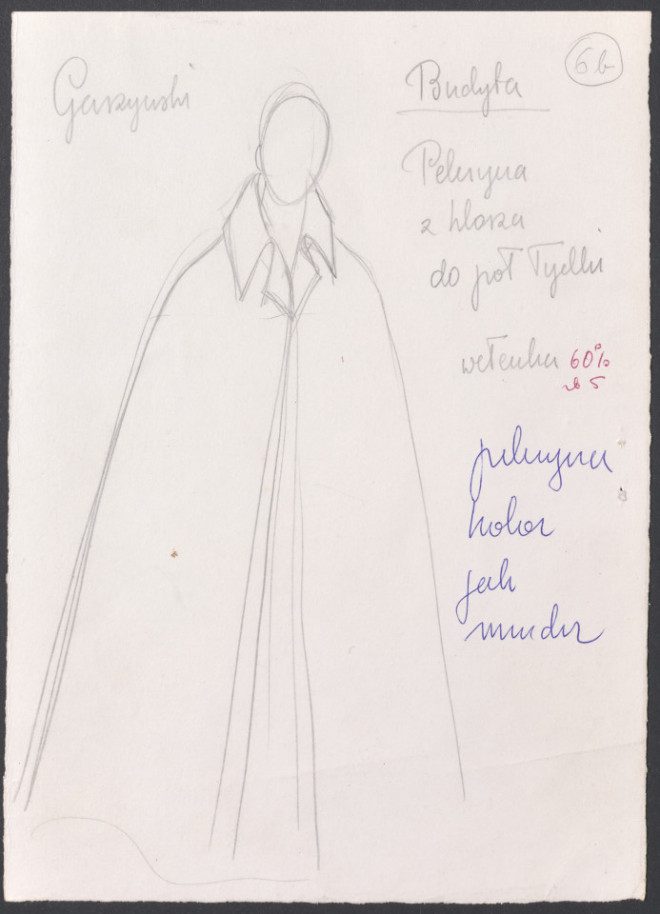 Garzyński
Budyta
6b
Peleryna
z klosza
do pół łydki
wełenka 60%
peleryna
kolor
jak
mundur